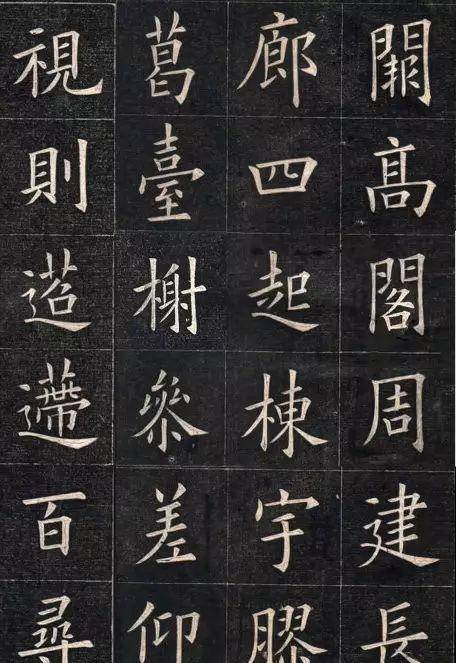 闕髙閣周建長
廊四起棟宇膠
葛臺榭參差仰
視則迢遰百尋